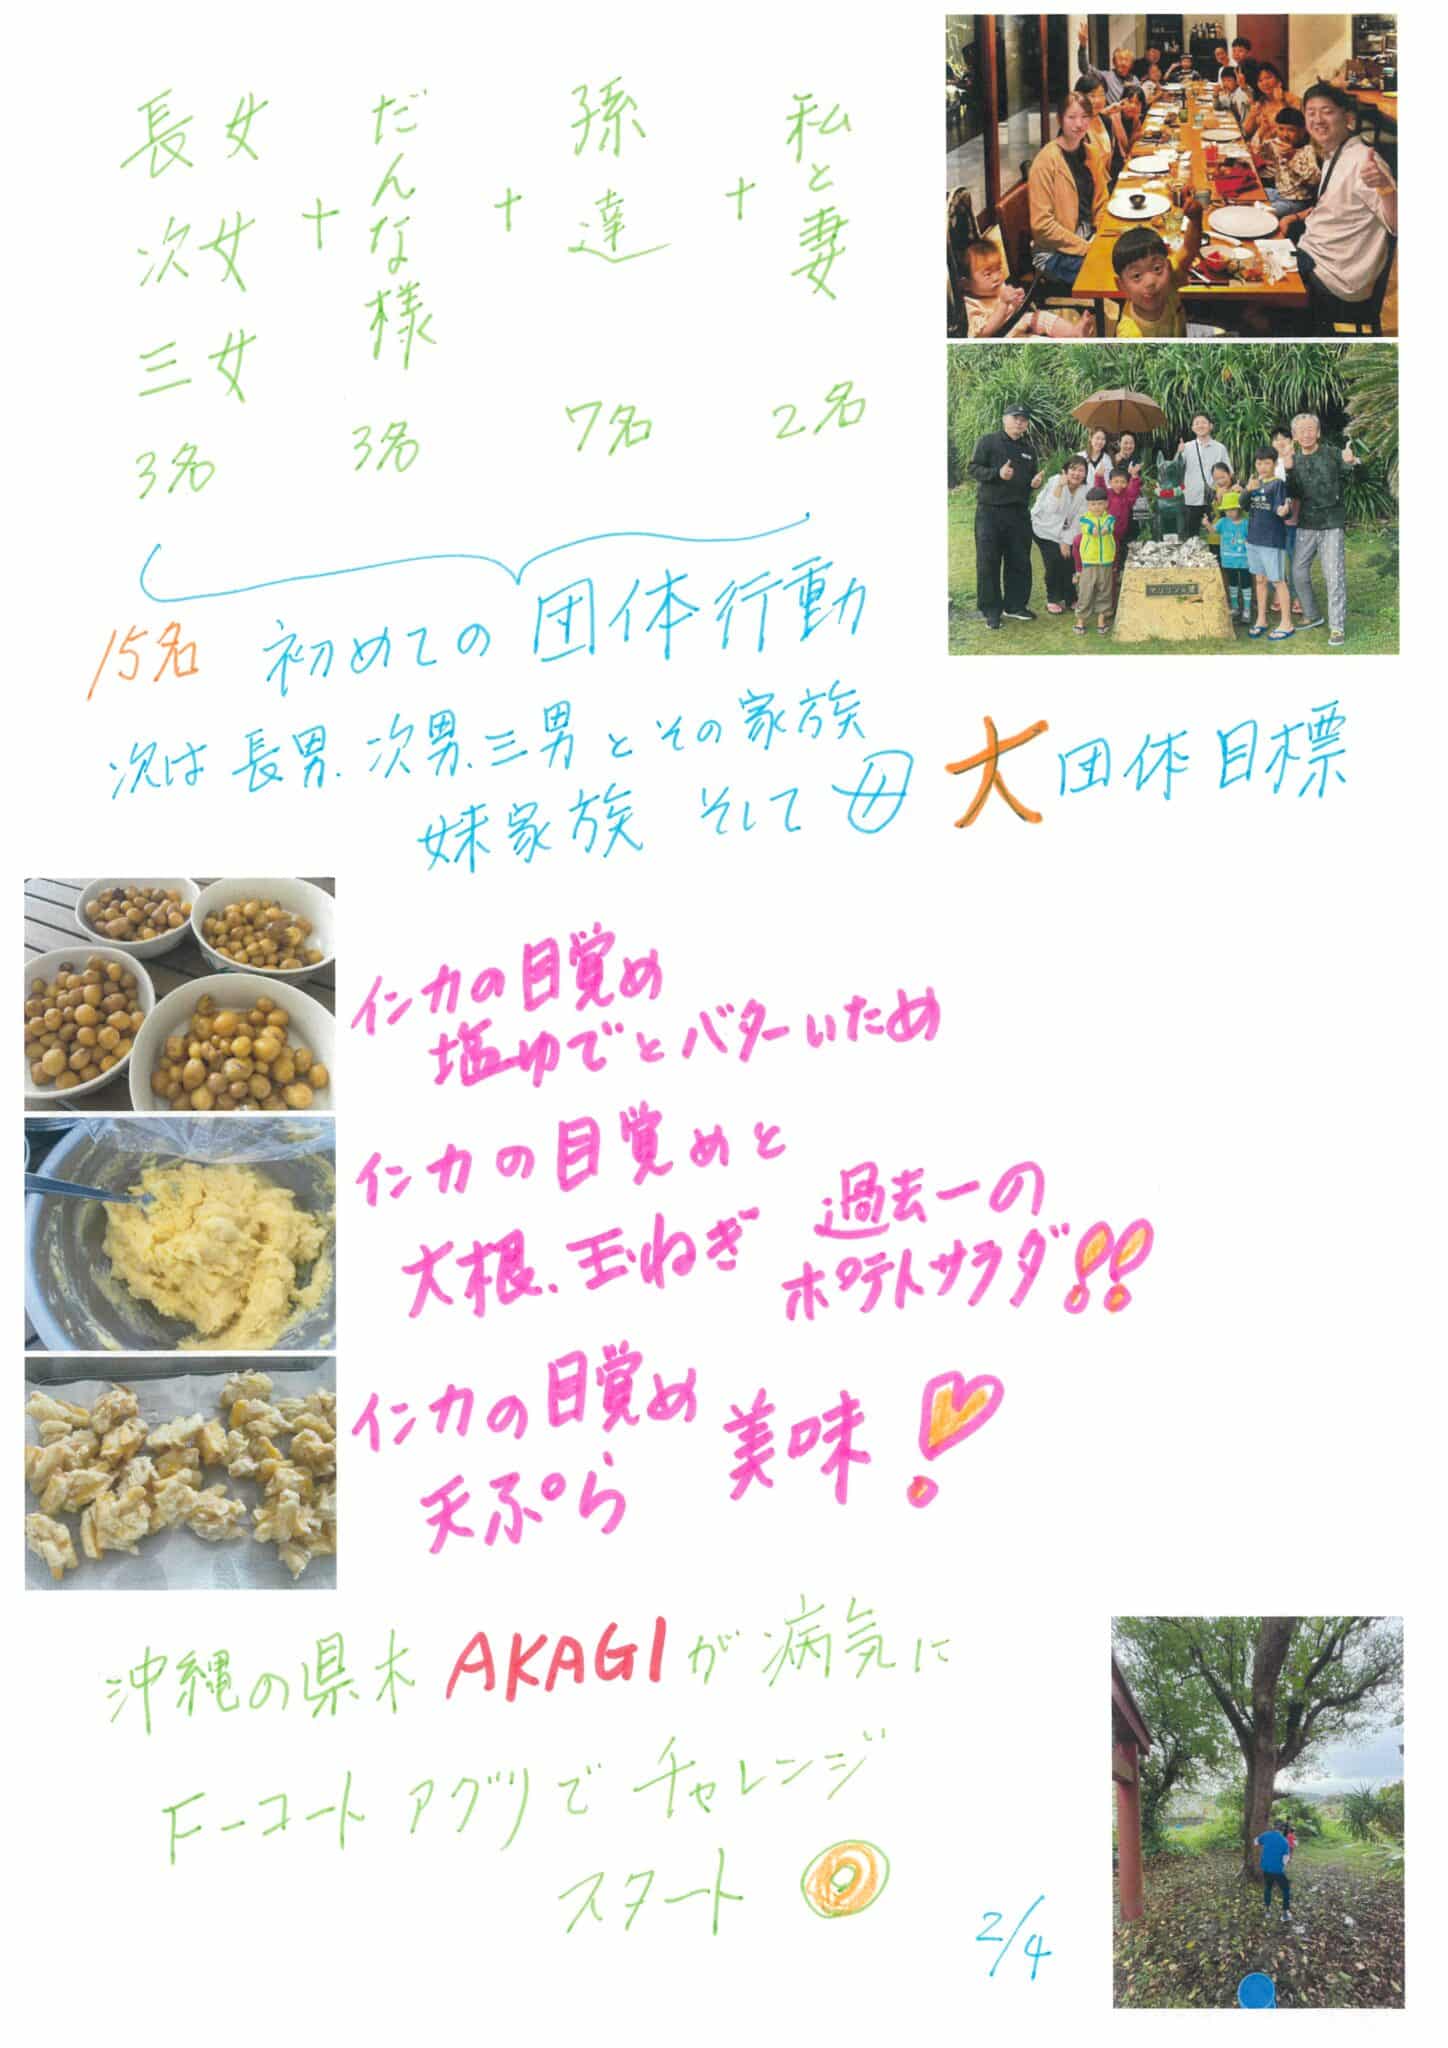 長女 だんな様 孫達 私と妻
次女 + + +
三女
3名 3名 7名 2名
15名 初めての団体行動
次は長男、次男、三男とその家族
妹家族 そして 母 大団体目標
インカの目覚め
塩ゆでとバターいため
インカの目覚めと
大根、玉ねぎ 過去一の
ポテトサラダ!!
インカの目覚め
天ぷら 美味!
沖縄の県木 AKAGIが病気に
F-コート アグリでチャレンジ
スタート
2/4